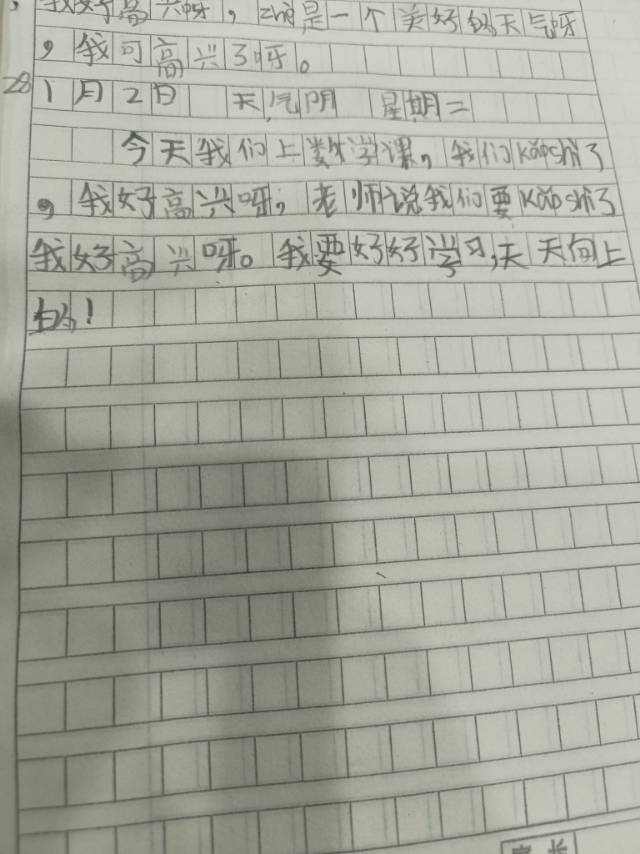 ，我好高兴呀，zhè是一个美好的天气呀
，我可高兴了呀。
28
1月2日 天气阴 星期二
今天我们上数学课，我们kǎoshì了
，我好高兴呀，老师说我们要kǎoshì了
我好高兴呀。我要好好学习，天天向上
的！
家长